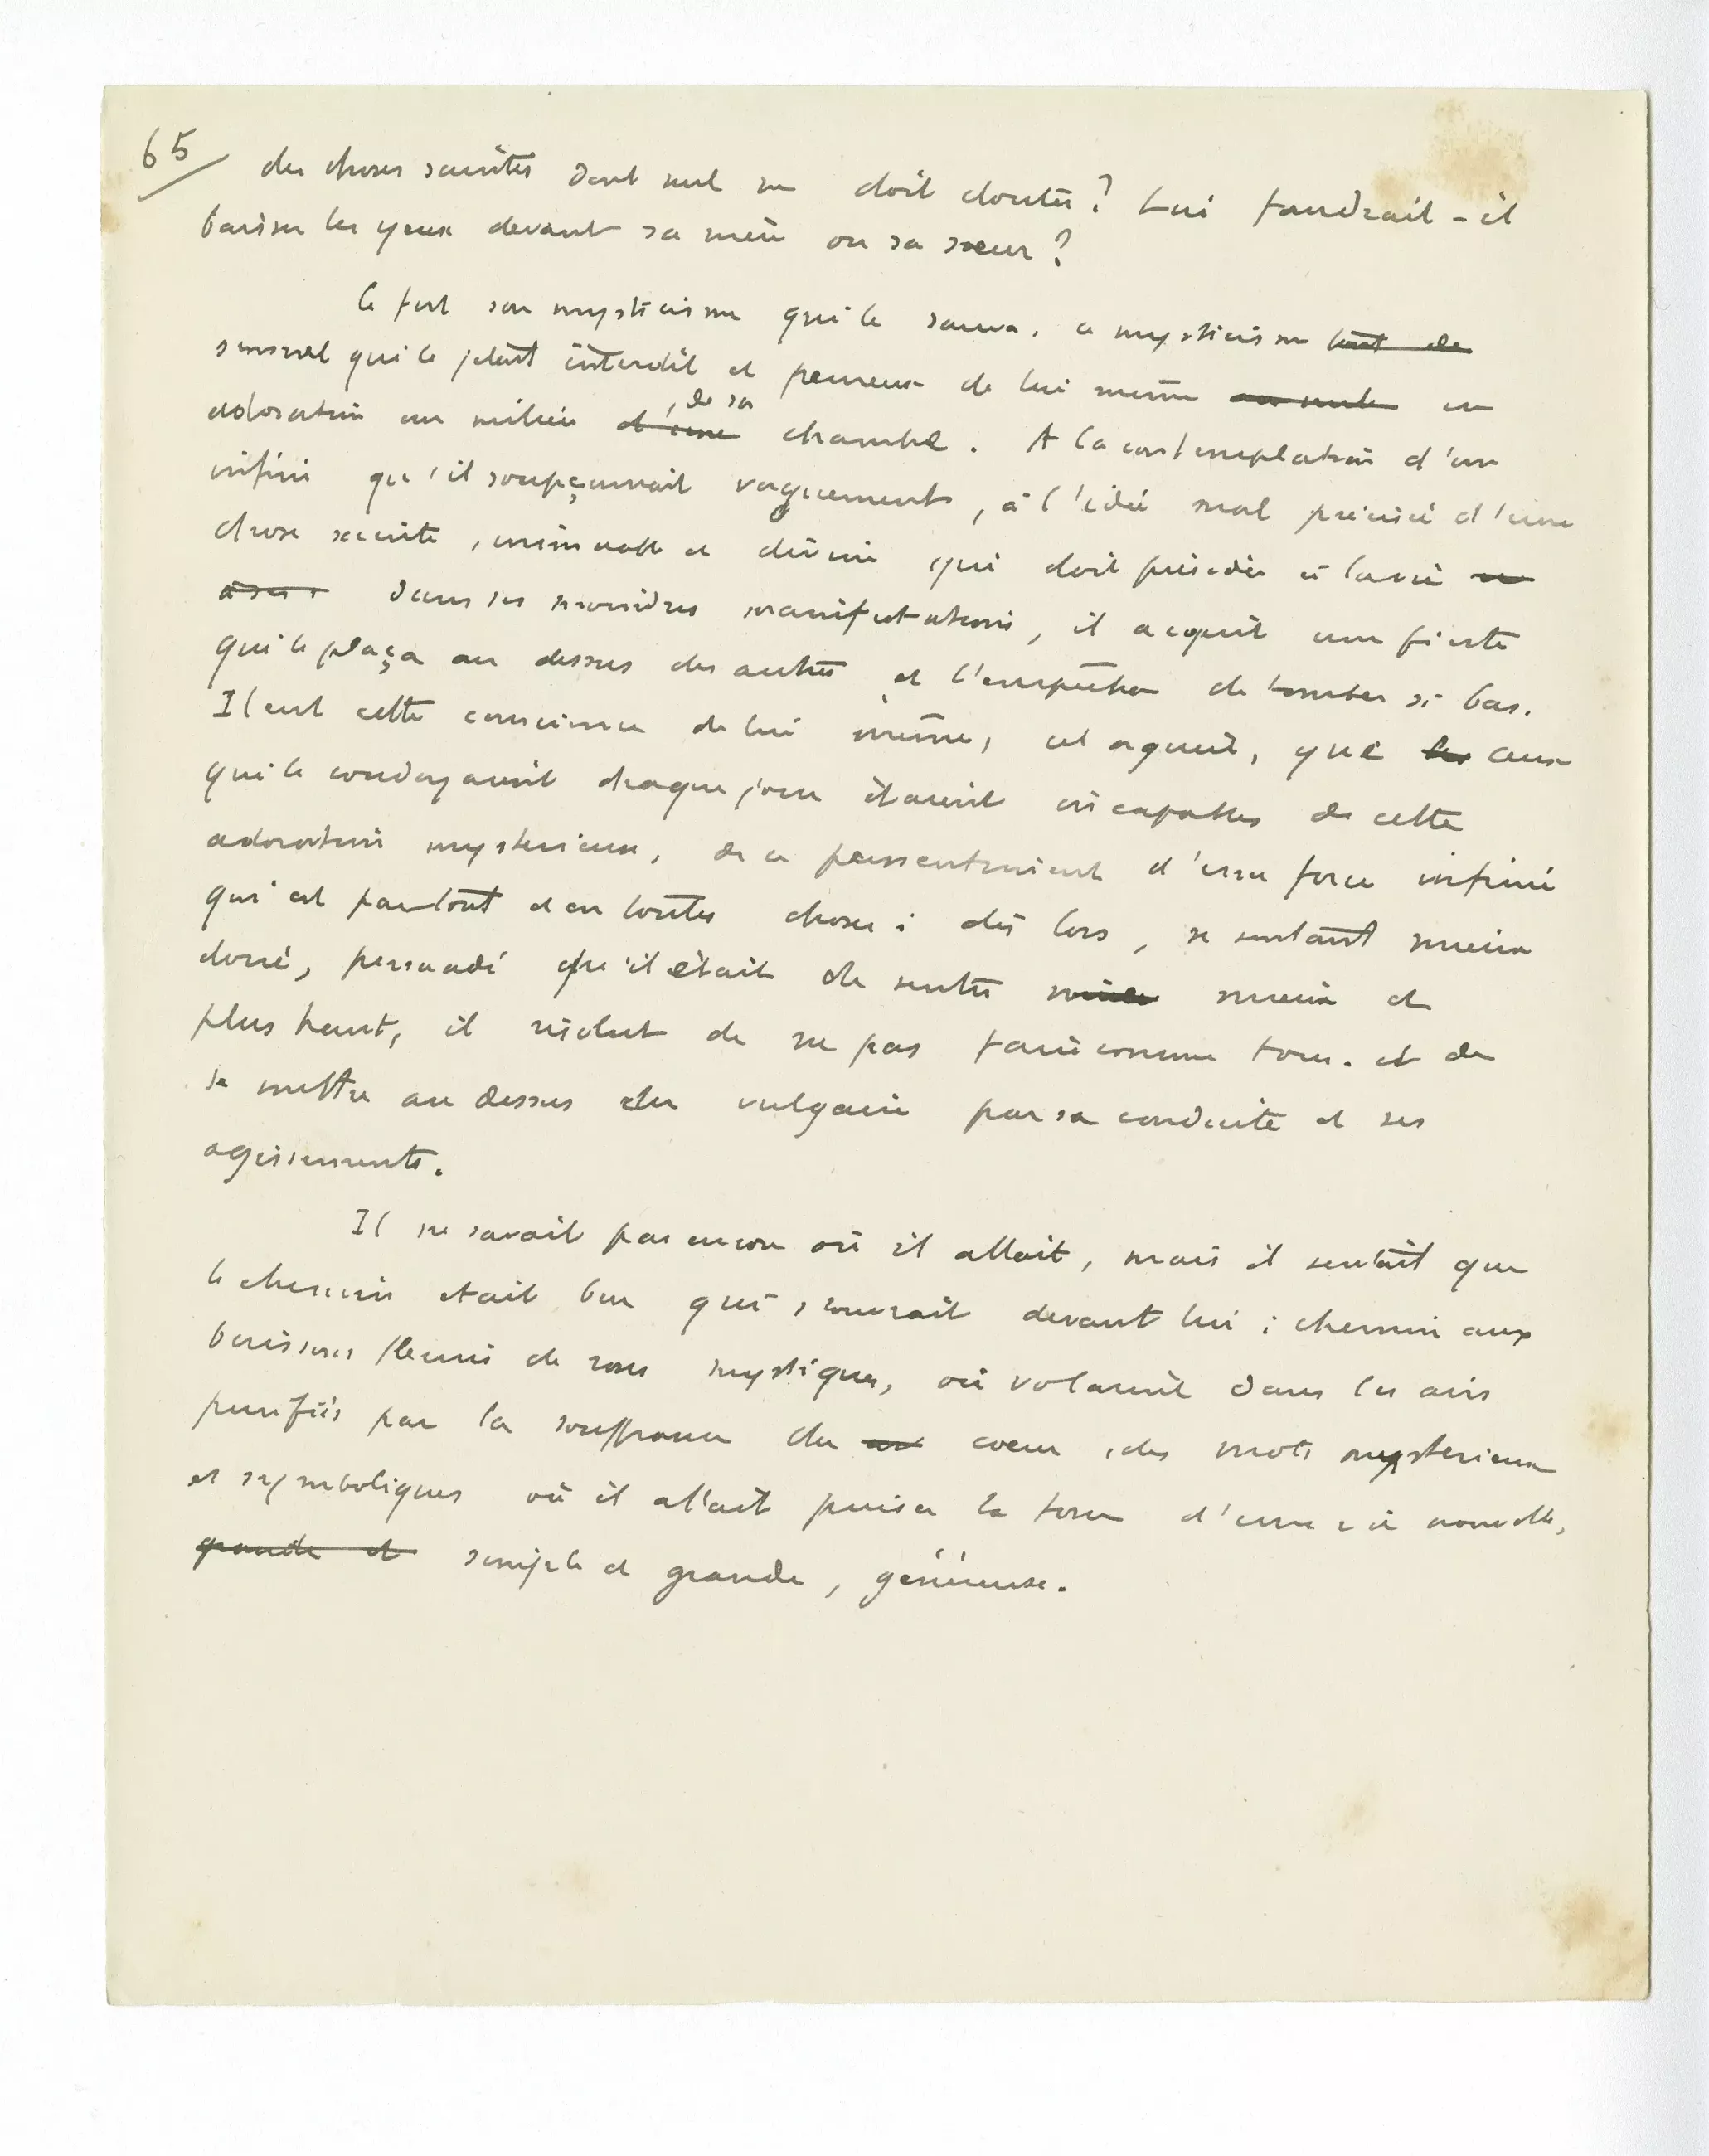 65/ des choses saintes dont nul ne doit douter ? Lui faudrait-il
baisser les yeux devant sa mère ou sa soeur ?
Ce fut son mysticisme qui le sauva, ce mysticisme tout de
sensuel qui le jetait interdit et peureux de lui même en
, de sa
adoration au milieu d'une chambre. A la contemplation d'un
infini qu'il soupçonnait vaguement, à l'idée mal précisée d'une
chose sainte, immuable et divine qui doit présider à la vie
dans ses moindres manifestations, il acquit une fierté
qui le plaça au dessus des autres et l'empêcha de tomber si bas.
Il eut cette conscience de lui même, cet orgueil, que les ceux
qui le coudoyaient chaque jour étaient incapables de cette
adoration mysterieuse, de ce pressentiment d'une force infinie
qui est partout et en toutes choses : dès lors, se sentant mieux
doué, persuadé qu'il était de sentir mieux et
plus haut, il résolut de ne pas faire comme tous. et de
se mettre au dessus du vulgaire par sa conduite et ses
agissements.
Il ne savait pas encore où il allait, mais il sentait que
le chemin etait bon qui s'ouvrait devant lui : chemin aux
buissons fleuris de roses mystiques, où volaient dans les airs
purifiés par la souffrance du coeur, des mots mysterieux
et symboliques où il allait puiser la force d'une vie nouvelle,
grande et simple et grande, généreuse.